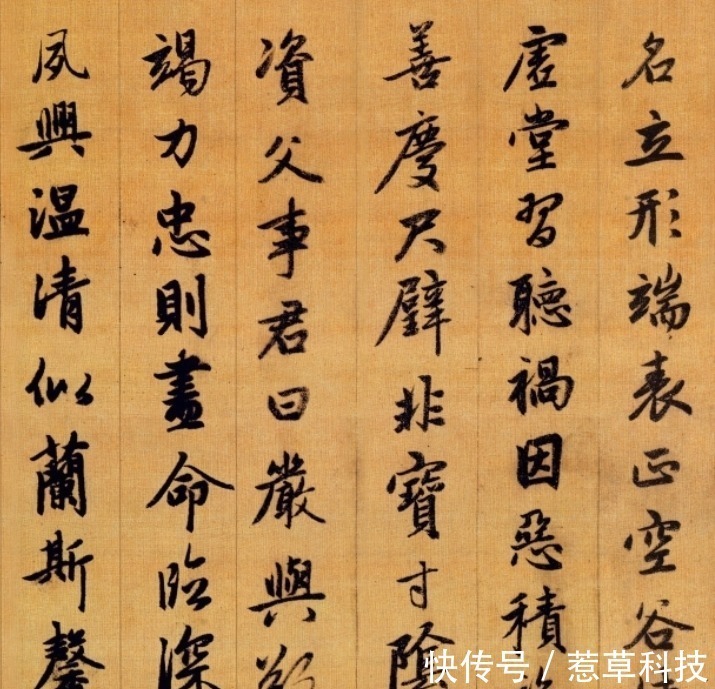 名立形端表正空谷
虛堂習聽禍因惡積
善慶尺璧非寶寸陰
資父事君曰嚴與
竭力忠則盡命臨深
夙興温清似蘭斯馨
快传号 / 惹草科技